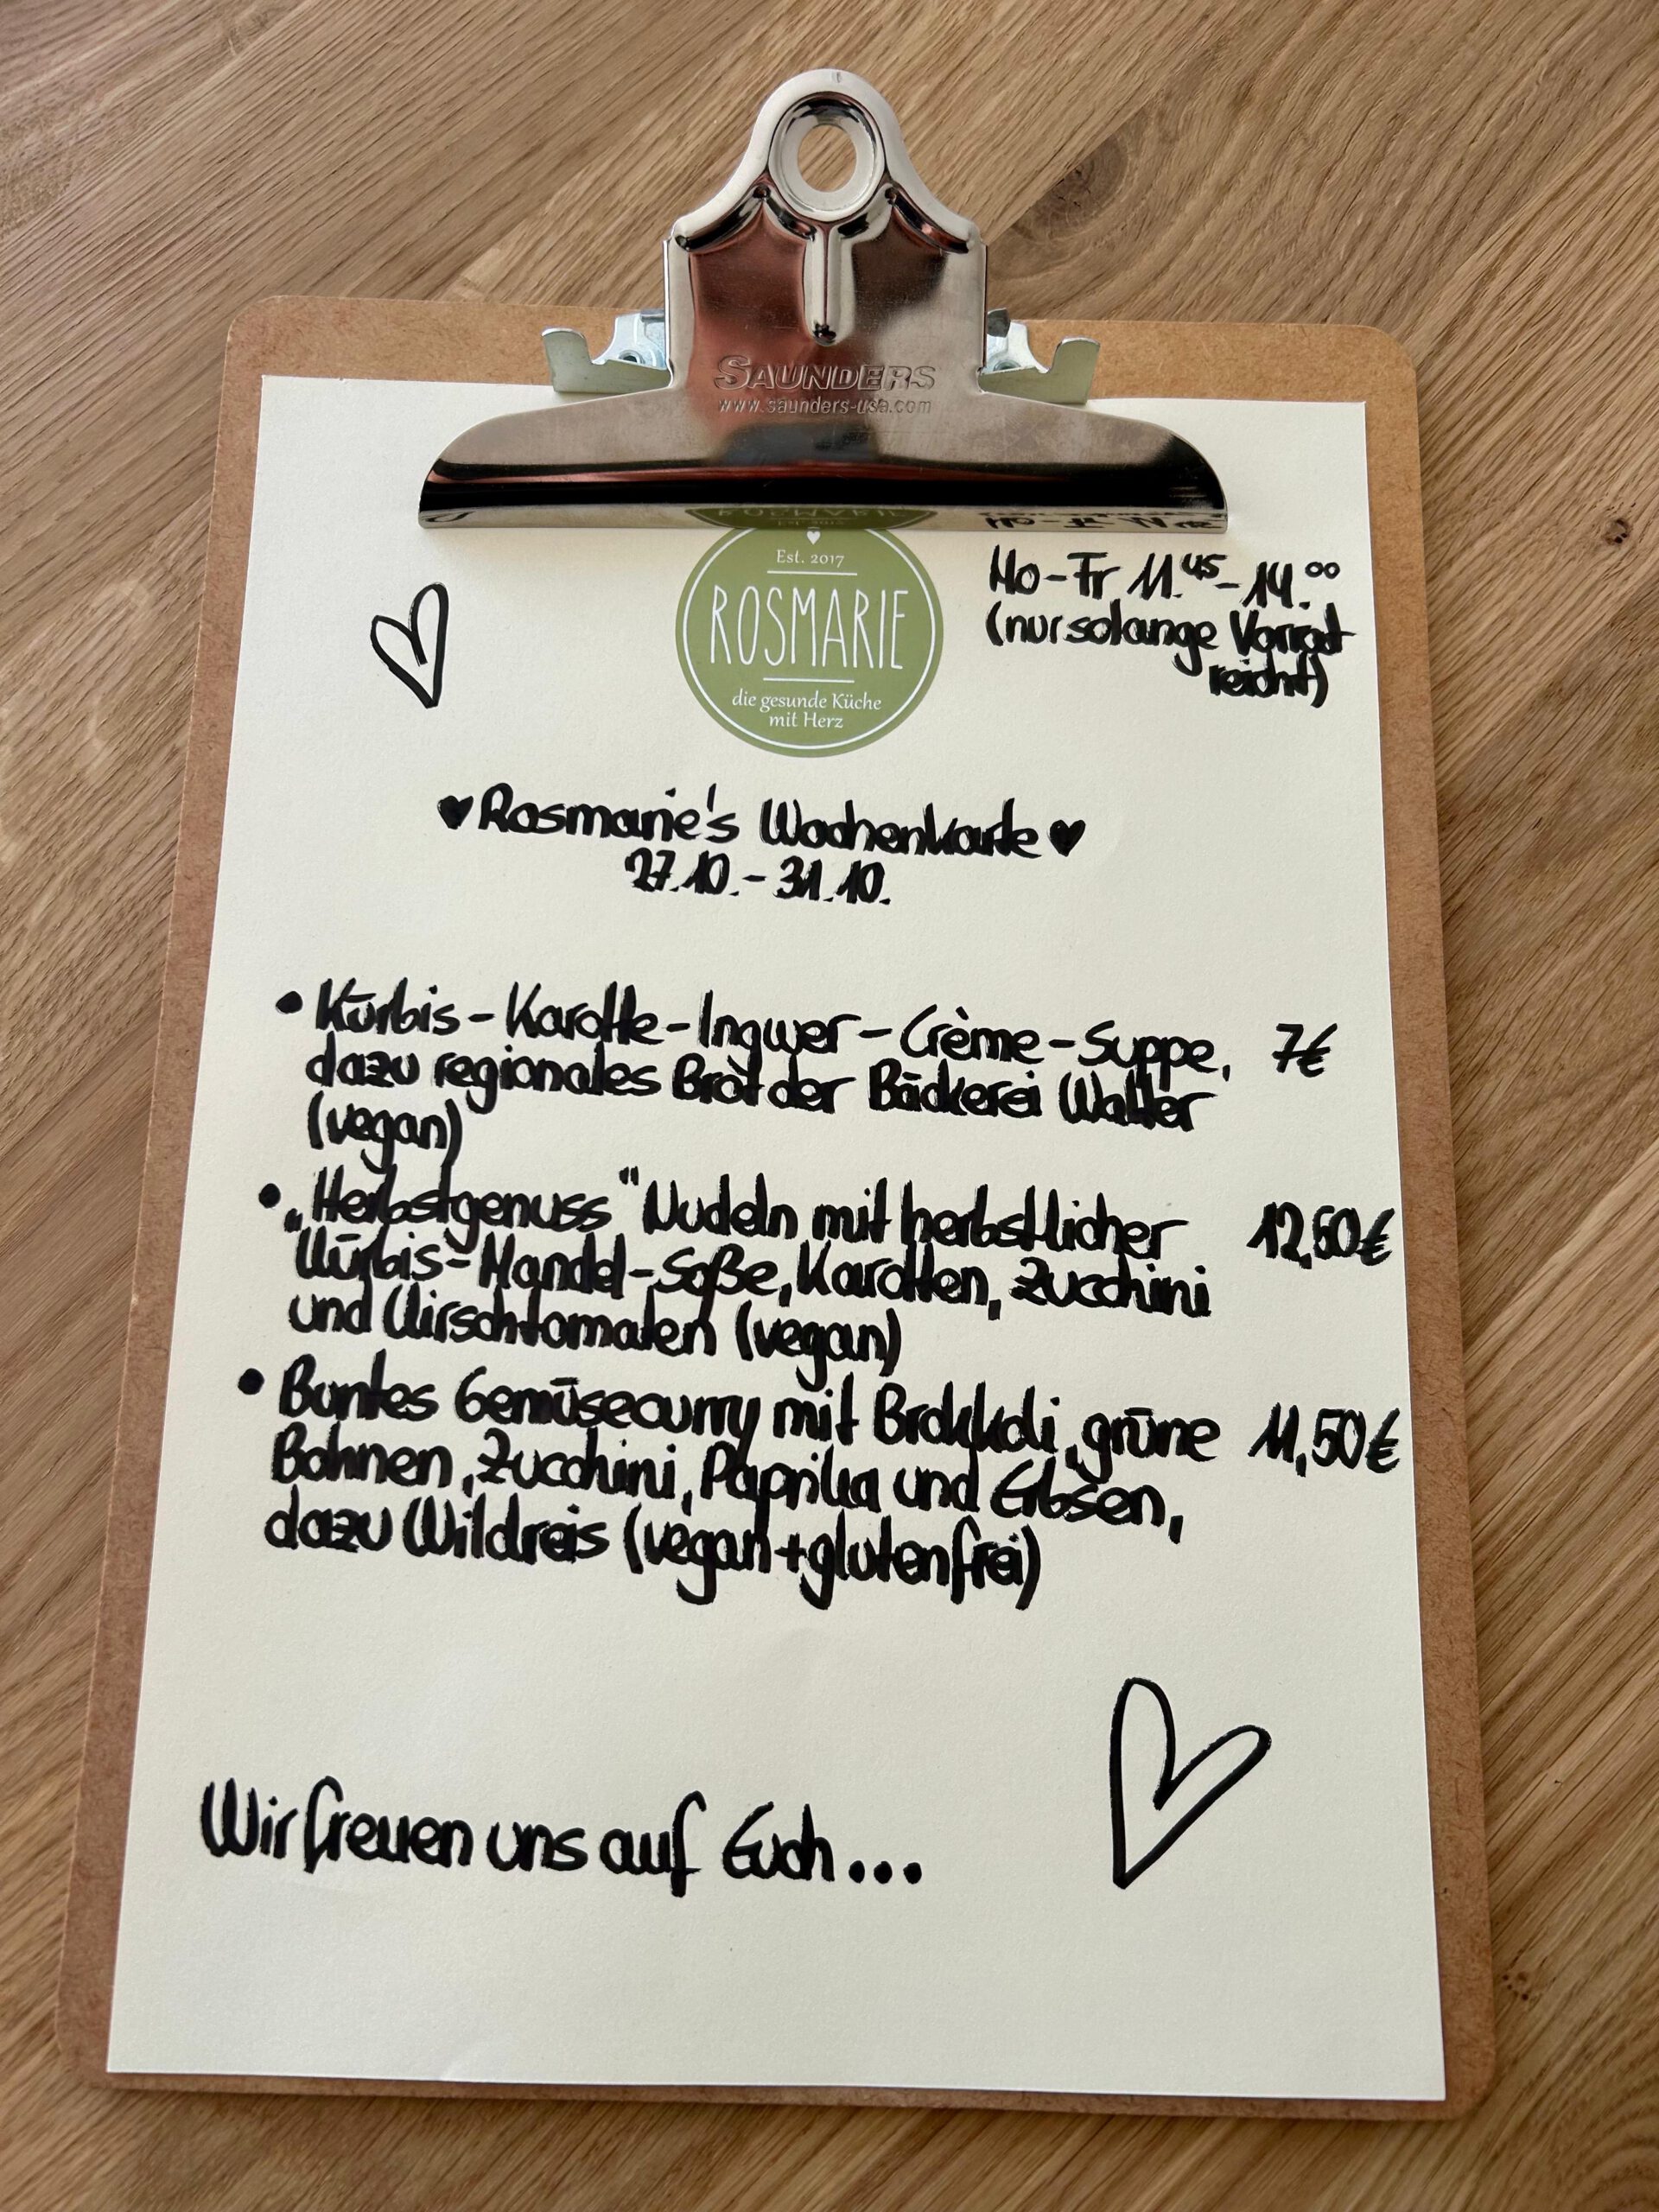 SAUNDERS
www.saunders-usa.com
Est. 2017
ROSMARIE
die gesunde Küche
mit Herz
Mo-Fr 11.45-14.00
(nur solange Vorrat
reicht)
Rosmarie's Wochenkarte
27.10.- 31.10.
• Kürbis-Karotte-Ingwer-Crème-Suppe, 7€
dazu regionales Brot der Bäckerei Walter
(vegan)
• „Herbstgenuss" Nudeln mit herbstlicher 12,50€
Kürbis-Mandel-Soße, Karotten, Zucchini
und Kirschtomaten (vegan)
• Buntes Gemüsecurry mit Brokkoli, grüne 11,50€
Bohnen, Zucchini, Paprika und Erbsen,
dazu Wildreis (vegan+glutenfrei)
Wir freuen uns auf Euch...